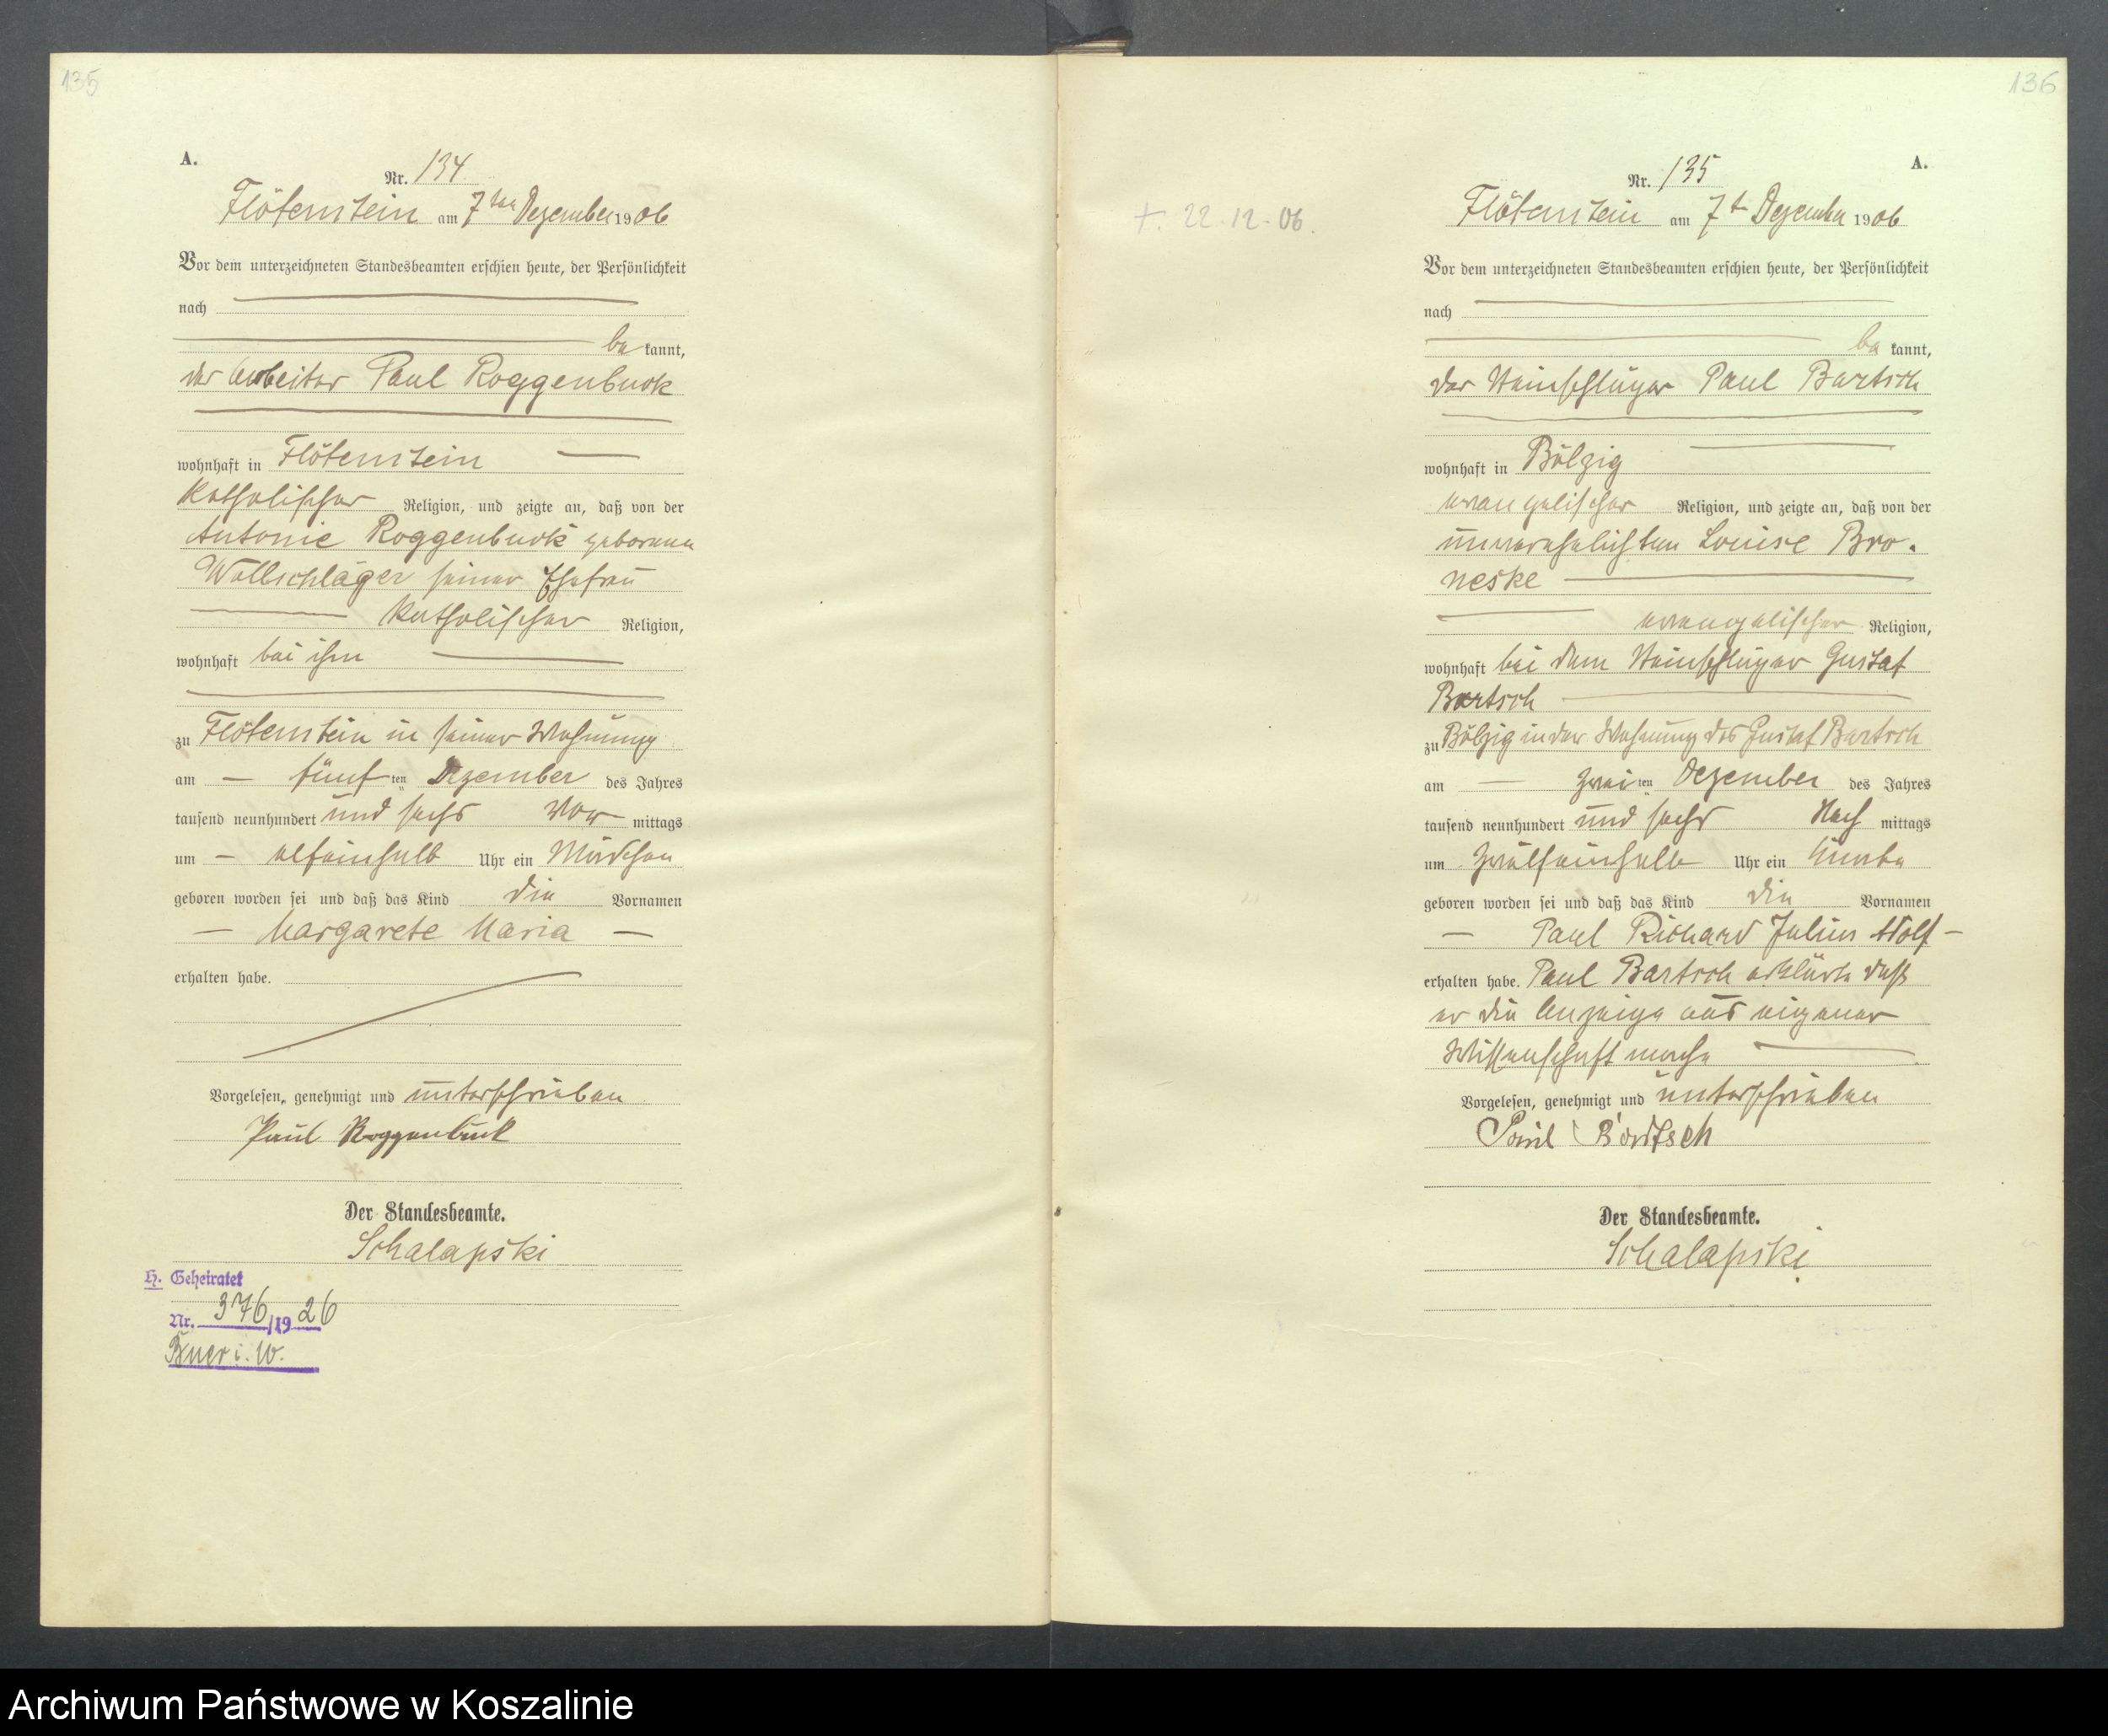 135
A.
Nr. 134
Flötenstein am 7ten Dezember 1906
Vor dem unterzeichneten Standesbeamten erschien heute, der Persönlichkeit
nach
be kannt,
der Arbeiter Paul Roggenbuck
wohnhaft in Flötenstein
katholischer Religion, und zeigte an, daß von der
Antonie Roggenbuck geborenen
Wollschläger seiner Ehefrau
katholischer Religion,
wohnhaft bei ihm
zu Flötenstein in seiner Wohnung
am fünf ten Dezember des Jahres
tausend neunhundert und sechs Vor mittags
um elfeinhalb Uhr ein Mädchen
geboren worden sei und daß das Kind die Vornamen
Margarete Maria
erhalten habe.
Vorgelesen, genehmigt und unterschrieben
Paul Roggenbuck
Der Standesbeamte.
Schalapski
H. Geheiratet
Nr. 376/1926
Buer i. W.
136
A.
Nr. 135
+. 22.12.06.
Flötenstein am 7t Dezember 1906
Vor dem unterzeichneten Standesbeamten erschien heute, der Persönlichkeit
nach
be kannt,
der Steinschläger Paul Bartsch
wohnhaft in Bölzig
evangelischer Religion, und zeigte an, daß von der
unverehelichten Louise Bro-
neske
evangelischer Religion,
wohnhaft bei dem Steinschläger Gustaf
Bartsch
zu Bölzig in der Wohnung des Gustaf Bartsch
am zwei ten Dezember des Jahres
tausend neunhundert und sechs Nach mittags
um zwölfeinhalb Uhr ein Knabe
geboren worden sei und daß das Kind die Vornamen
Paul Richard Julius Adolf
erhalten habe. Paul Bartsch erklärte daß
er die Anzeige aus eigener
Wissenschaft mache
Vorgelesen, genehmigt und unterschrieben
Paul Bartsch
Der Standesbeamte.
Schalapski
Archiwum Państwowe w Koszalinie